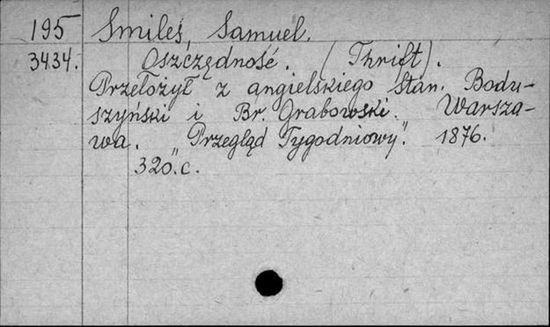 195 Smiles, Samuel.
3434. Oszczędność. (Thrift).
Przełożył z angielskiego Stan. Bodu-
szyński i Br. Grabowski. Warsza-
wa. „Przegląd Tygodniowy". 1876.
320.c.